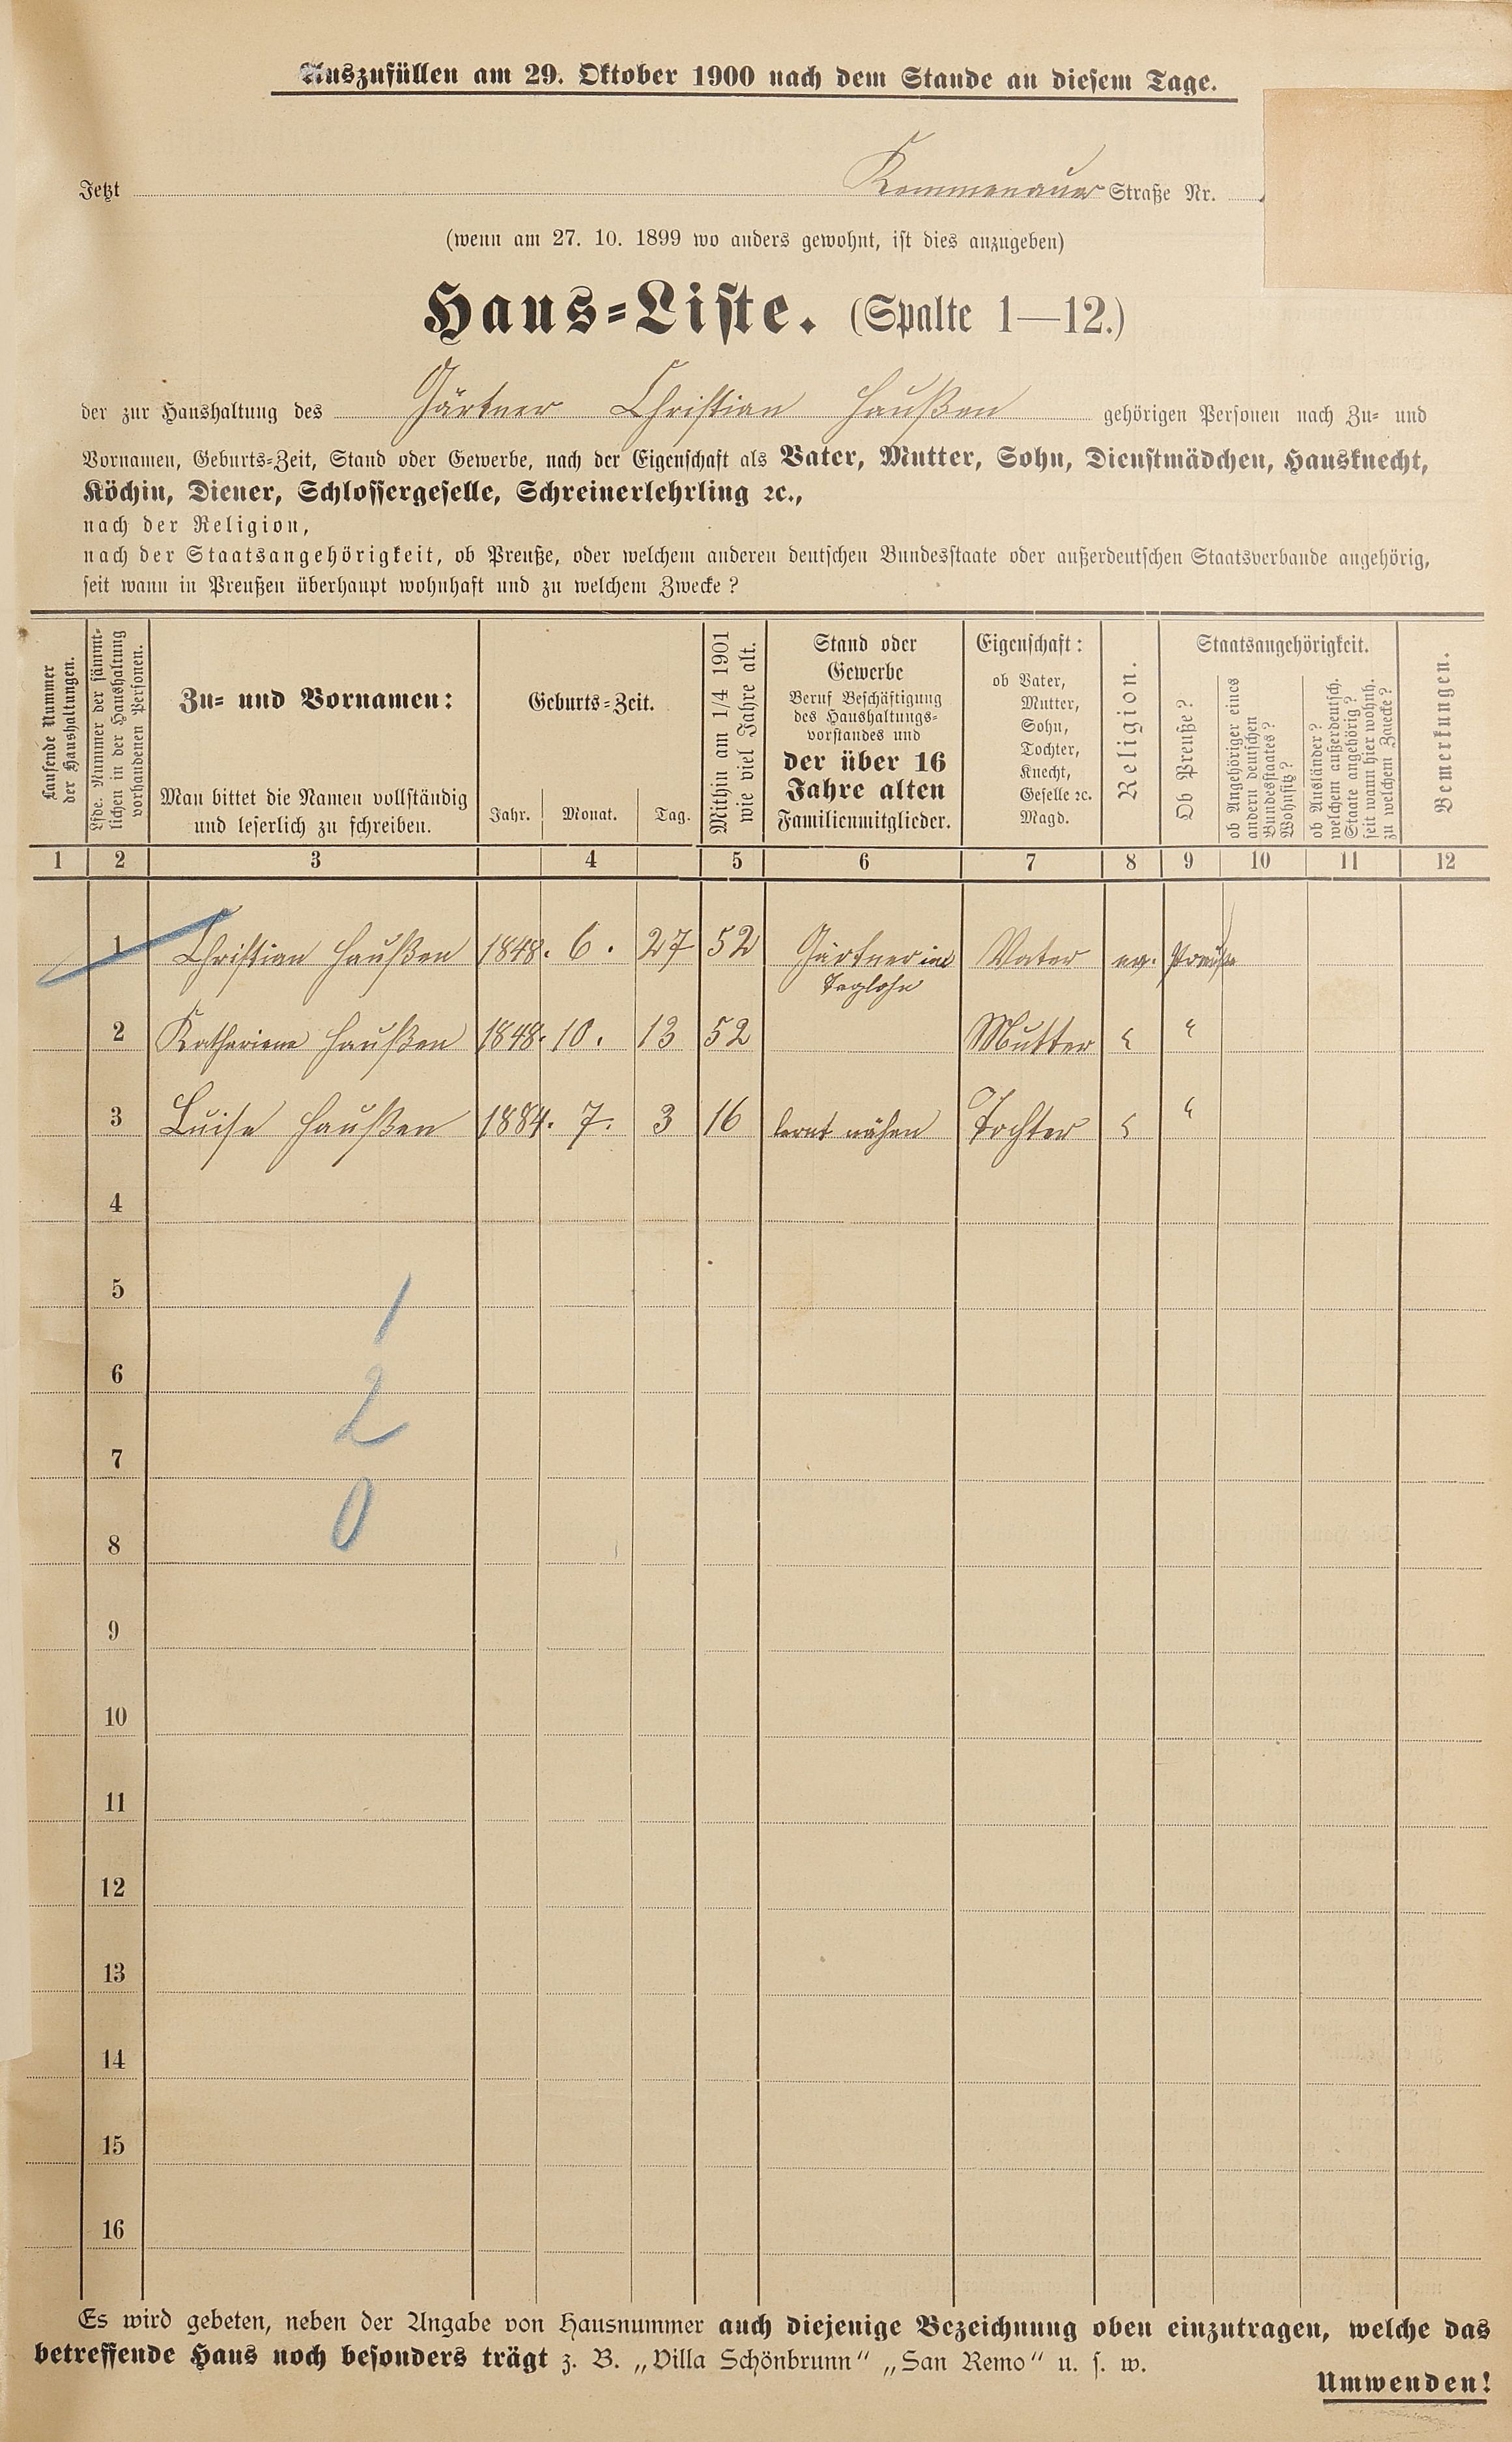 Auszufüllen am 29. Oktober 1900 nach dem Stande an diesem Tage.
Jetzt Straße Nr.
(wenn am 27. 10. 1899 wo anders gewohnt, ist dies anzugeben)
Haus-Liste. (Spalte 1—12.)
der zur Haushaltung des Gärtner Christian Haußen gehörigen Personen nach Zu- und
Vornamen, Geburts-Zeit, Stand oder Gewerbe, nach der Eigenschaft als Vater, Mutter, Sohn, Dienstmädchen, Hausknecht,
Köchin, Diener, Schlossergeselle, Schreinerlehrling ꝛc.,
nach der Religion,
nach der Staatsangehörigkeit, ob Preuße, oder welchem anderen deutschen Bundesstaate oder außerdeutschen Staatsverbande angehörig,
seit wann in Preußen überhaupt wohnhaft und zu welchem Zwecke?
Laufende Nummer
der Haushaltungen.
Lfde. Nummer der sämmt-
lichen in der Haushaltung
vorhandenen Personen.
Zu- und Vornamen:
Man bittet die Namen vollständig
und leserlich zu schreiben.
Geburts-Zeit.
Jahr. Monat. Tag.
Mithin am 1/4 1901
wie viel Jahre alt.
Stand oder
Gewerbe
Beruf Beschäftigung
des Haushaltungs-
vorstandes und
der über 16
Jahre alten
Familienmitglieder.
Eigenschaft:
ob Vater,
Mutter,
Sohn,
Tochter,
Knecht,
Geselle ꝛc.
Magd.
Religion.
Staatsangehörigkeit.
Ob Preuße?
ob Angehöriger eines
andern deutschen
Bundesstaates?
Wohnsitz?
ob Ausländer?
welchem außerdeutsch.
Staate angehörig?
seit wann hier wohnh.
zu welchem Zwecke?
Bemerkungen.
1 2 3 4 5 6 7 8 9 10 11 12
1 Christian Haußen 1848. 6. 27 52 Gärtner im Vater ev. Preuße
Taglohn
2 Kathariena Haußen 1848. 10. 13 52 Mutter " "
3 Luise Haußen 1884. 7. 3 16 lernt nähen Tochter " "
4
5
1
6
2
7
0
8
9
10
11
12
13
14
15
16
Es wird gebeten, neben der Angabe von Hausnummer auch diejenige Bezeichnung oben einzutragen, welche das
betreffende Haus noch besonders trägt z. B. „Villa Schönbrunn“ „San Remo“ u. s. w.
Umwenden!